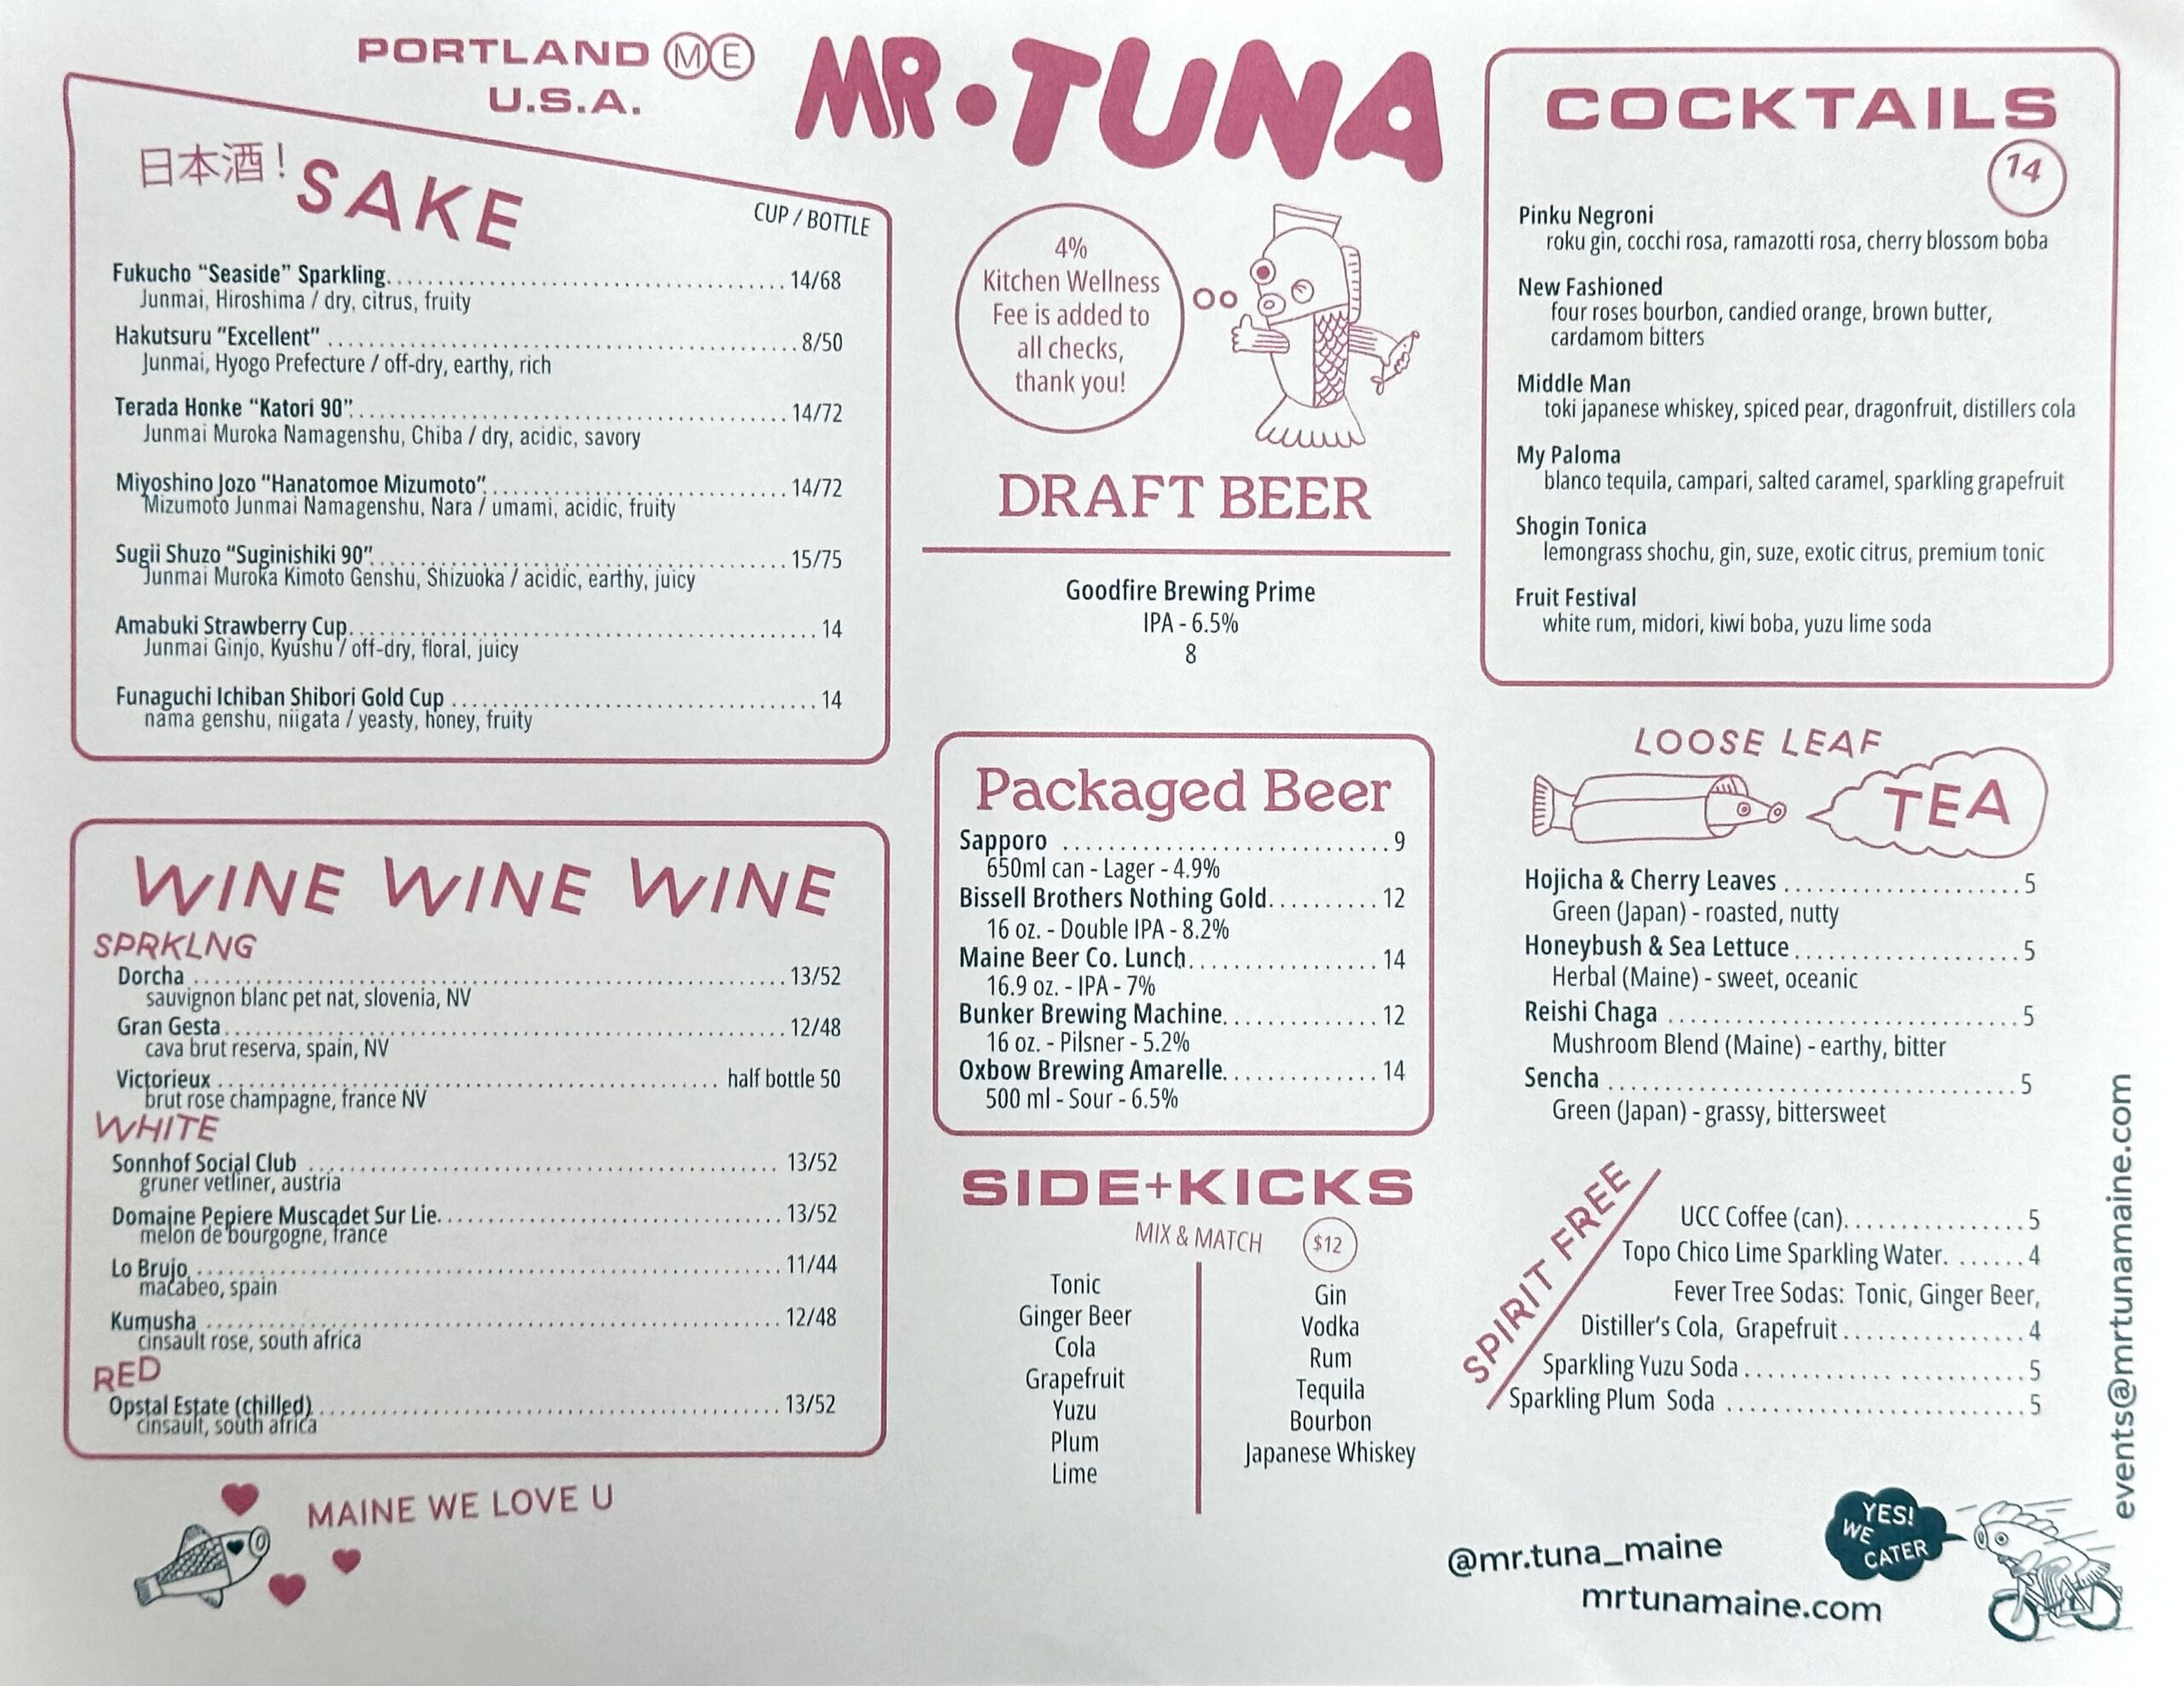 PORTLAND ME
U.S.A.
MR•TUNA
日本酒! SAKE
CUP / BOTTLE
Fukucho “Seaside” Sparkling.......14/68
Junmai, Hiroshima / dry, citrus, fruity
Hakutsuru "Excellent" .......8/50
Junmai, Hyogo Prefecture / off-dry, earthy, rich
Terada Honke “Katori 90”.......14/72
Junmai Muroka Namagenshu, Chiba / dry, acidic, savory
Miyoshino Jozo "Hanatomoe Mizumoto".......14/72
Mizumoto Junmai Namagenshu, Nara / umami, acidic, fruity
Sugii Shuzo “Suginishiki 90”.......15/75
Junmai Muroka Kimoto Genshu, Shizuoka / acidic, earthy, juicy
Amabuki Strawberry Cup.......14
Junmai Ginjo, Kyushu / off-dry, floral, juicy
Funaguchi Ichiban Shibori Gold Cup .......14
nama genshu, niigata / yeasty, honey, fruity
WINE WINE WINE
SPRKLNG
Dorcha .......13/52
sauvignon blanc pet nat, slovenia, NV
Gran Gesta.......12/48
cava brut reserva, spain, NV
Victorieux ....... half bottle 50
brut rose champagne, france NV
WHITE
Sonnhof Social Club .......13/52
gruner vetliner, austria
Domaine Pepiere Muscadet Sur Lie.......13/52
melon de bourgogne, france
Lo Brujo .......11/44
macabeo, spain
Kumusha .......12/48
cinsault rose, south africa
RED
Opstal Estate (chilled) .......13/52
cinsault, south africa
MAINE WE LOVE U
4%
Kitchen Wellness
Fee is added to
all checks,
thank you!
DRAFT BEER
Goodfire Brewing Prime
IPA - 6.5%
8
Packaged Beer
Sapporo .......9
650ml can - Lager - 4.9%
Bissell Brothers Nothing Gold.......12
16 oz. - Double IPA - 8.2%
Maine Beer Co. Lunch.......14
16.9 oz. - IPA - 7%
Bunker Brewing Machine.......12
16 oz. - Pilsner - 5.2%
Oxbow Brewing Amarelle.......14
500 ml - Sour - 6.5%
SIDE+KICKS
MIX & MATCH $12
Tonic
Ginger Beer
Cola
Grapefruit
Yuzu
Plum
Lime
Gin
Vodka
Rum
Tequila
Bourbon
Japanese Whiskey
COCKTAILS
14
Pinku Negroni
roku gin, cocchi rosa, ramazotti rosa, cherry blossom boba
New Fashioned
four roses bourbon, candied orange, brown butter,
cardamom bitters
Middle Man
toki japanese whiskey, spiced pear, dragonfruit, distillers cola
My Paloma
blanco tequila, campari, salted caramel, sparkling grapefruit
Shogin Tonica
lemongrass shochu, gin, suze, exotic citrus, premium tonic
Fruit Festival
white rum, midori, kiwi boba, yuzu lime soda
LOOSE LEAF
TEA
Hojicha & Cherry Leaves .......5
Green (Japan) - roasted, nutty
Honeybush & Sea Lettuce.......5
Herbal (Maine) - sweet, oceanic
Reishi Chaga .......5
Mushroom Blend (Maine) - earthy, bitter
Sencha .......5
Green (Japan) - grassy, bittersweet
SPIRIT FREE
UCC Coffee (can).......5
Topo Chico Lime Sparkling Water.......4
Fever Tree Sodas: Tonic, Ginger Beer,
Distiller's Cola, Grapefruit.......4
Sparkling Yuzu Soda.......5
Sparkling Plum Soda .......5
events@mrtunamaine.com
@mr.tuna_maine
mrtunamaine.com
YES!
WE
CATER